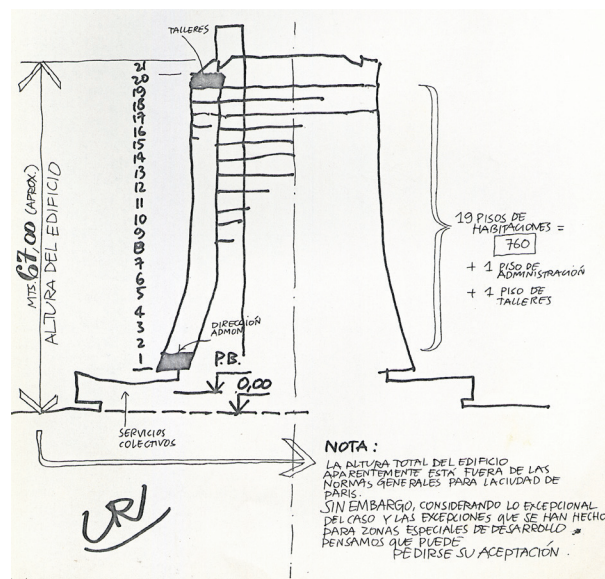 TALLERES
21
20
19
18
17
16
15
14
13
12
11
10
9
8
7
6
5
4
3
2
1
MTS. 67,00 (APROX.)
ALTURA DEL EDIFICIO
19 PISOS DE
HABITACIONES =
760
+ 1 PISO DE
ADMINISTRACIÓN
+ 1 PISO DE
TALLERES
DIRECCIÓN
ADMON
P.B.
0,00
SERVICIOS
COLECTIVOS
NOTA:
LA ALTURA TOTAL DEL EDIFICIO
APARENTEMENTE ESTÁ FUERA DE LAS
NORMAS GENERALES PARA LA CIUDAD DE
PARIS.
SIN EMBARGO, CONSIDERANDO LO EXCEPCIONAL
DEL CASO Y LAS EXCEPCIONES QUE SE HAN HECHO
PARA ZONAS ESPECIALES DE DESARROLLO
PENSAMOS QUE PUEDE
PEDIRSE SU ACEPTACIÓN.